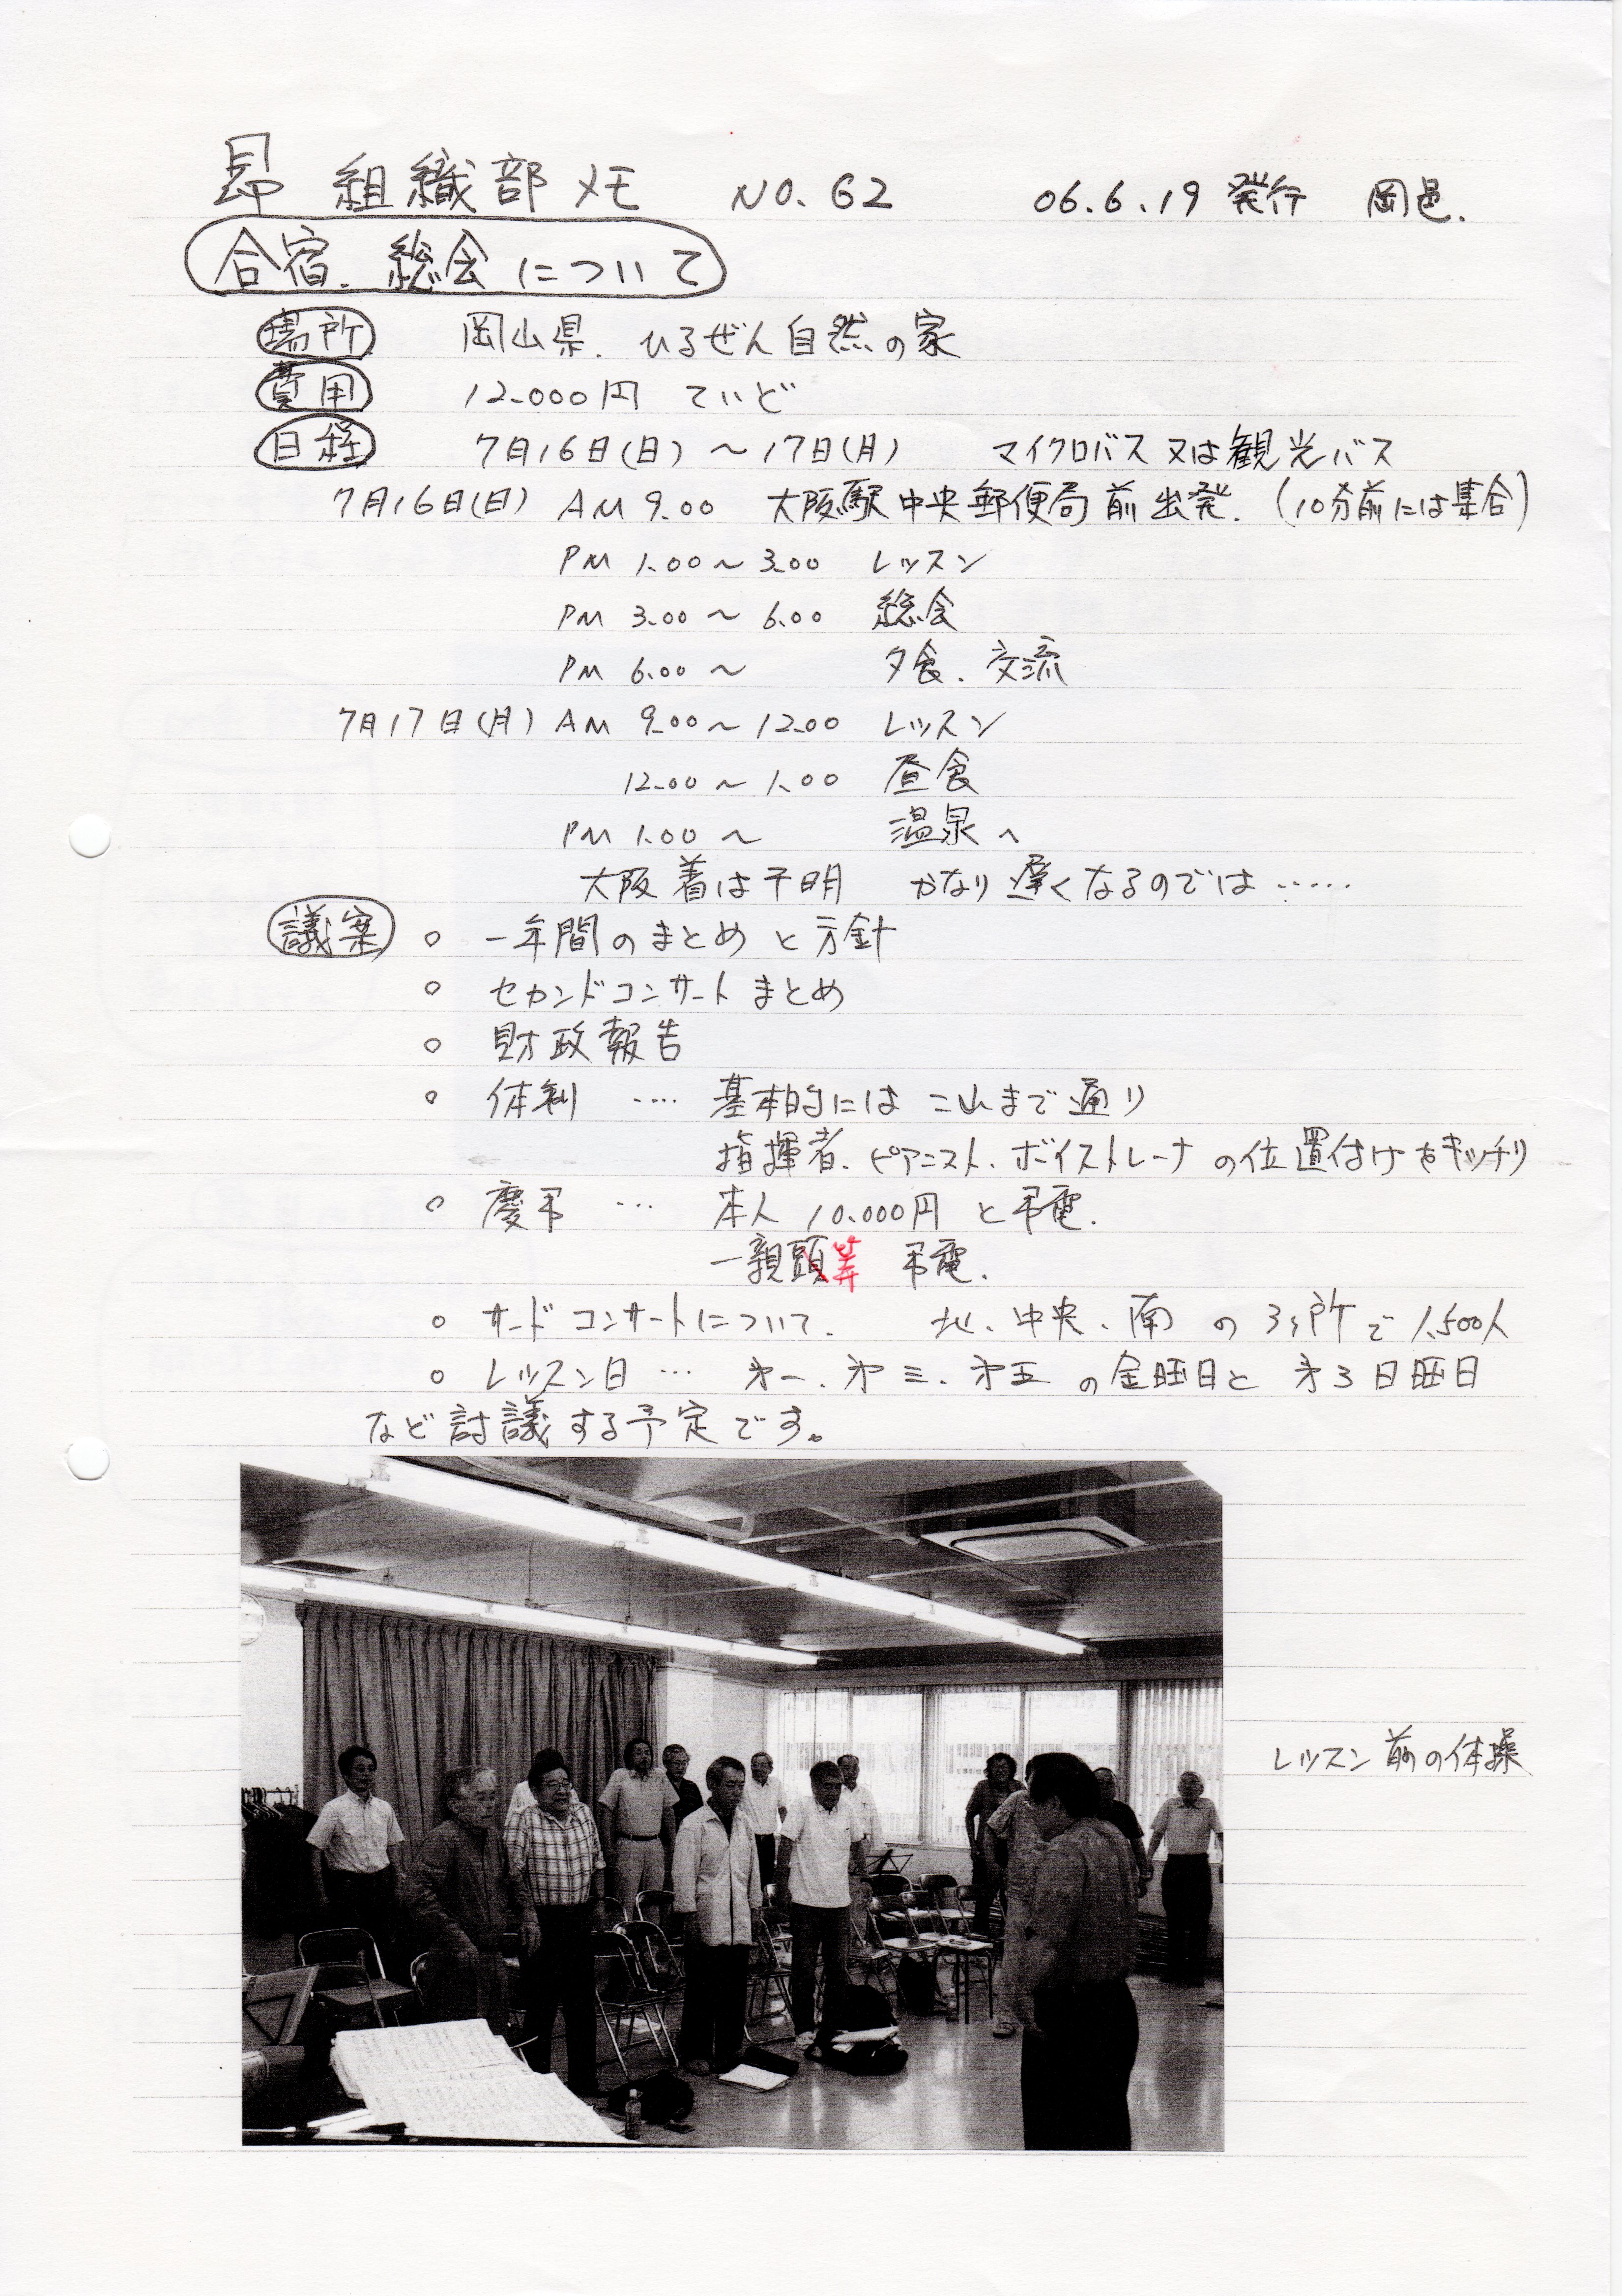 昴 組織部メモ NO.62 06.6.19 発行 岡邑.
合宿.総会について
場所 岡山県.ひるぜん自然の家
費用 12.000円 ていど
日程 7月16日(日)～17日(月) マイクロバス又は観光バス
7月16日(日) AM 9.00 大阪駅中央郵便局前出発.(10分前には集合)
PM 1.00～3.00 レッスン
PM 3.00～6.00 総会
PM 6.00～ 夕食.交流
7月17日(月) AM 9.00～12.00 レッスン
12.00～1.00 昼食
PM 1.00～ 温泉へ
大阪着は不明 かなり遅くなるのでは……
議案 ○ 一年間のまとめと方針
○ セカンドコンサートまとめ
○ 財政報告
○ 体制 …. 基本的にはこれまで通り
指揮者.ピアニスト.ボイストレーナの位置付けをキッチリ
○ 慶弔 … 本人 10.000円と弔電.
一親等 弔電.
○ サードコンサートについて. 北、中央、南の3ヶ所で1.500人
○ レッスン日 … 第一、第三、第五の金曜日と第3日曜日
など討議する予定です。
レッスン前の体操